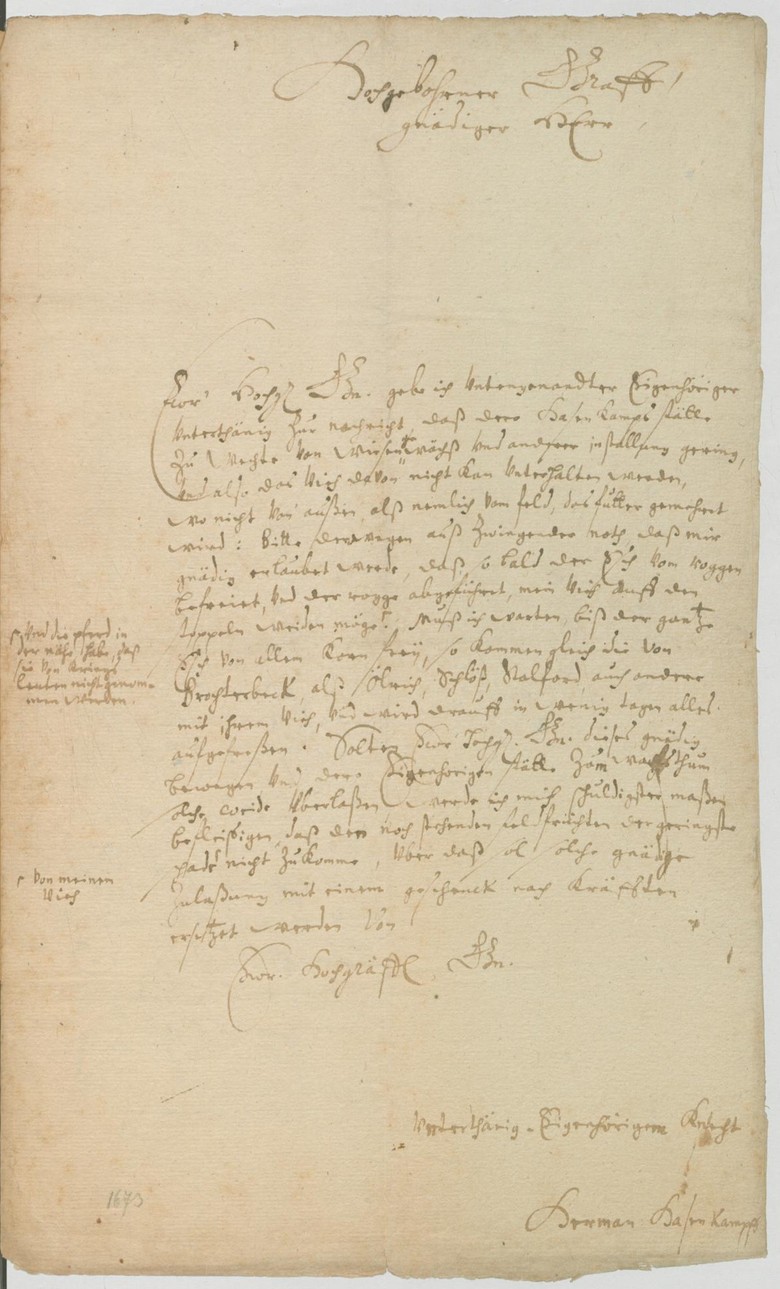 Hochgebohrner Graff,
gnädiger Herr,
Ewr Hochg. Gn. gebe ich Untengenandter Eigenhöriger
Unterthänig zur nachricht, daß dero HasenKamps stätte
zu Vechte von Wiesenwachß und andrer gering,
und also das Vieh davon nicht Kan Unterhalten werden,
wo nicht von außen, alß nemlich vom feld, das futter gemehret
wird: Bitte derowegen auß Zwingender noth, daß mir
gnädig erlaubet werde, daß, so bald der Esch vom roggen
befreiet, Und der rogge abgeführet, mein Vieh auff den
stoppeln weiden möge. Muß ich warten, biß der gantze
Esch von allem Korn frey, so Kommen gleich die von
Brochterbeck, alß Schloß, Stalford, auch andere
mit ihrem Vieh, Und wird drauff in wenig tagen alles
aufgefreßen. Solten Ewr Hochg. Gn. dieses gnädig
bewegen Und dero Eigenhörigen stätte zum wachsthum
solche weide Überlaßen, werde ich mich schuldigster maßen
befleißigen, daß den noch stehenden feldfrüchten der geringste
schade nicht zuKomme, Über daß sol solche gnädige
zulaßung mit einem geschenck nach Kräfften
ersetzet werden Von
Ewr. Hochgräffl. Gn.
Und die pferd in
der nähe habe, daß
sie von Kriegs
leuten nicht genom-
men werden.
von meinem
Vieh
Unterthänig-Eigenhörigem Knecht
Herman HasenKampff
1673